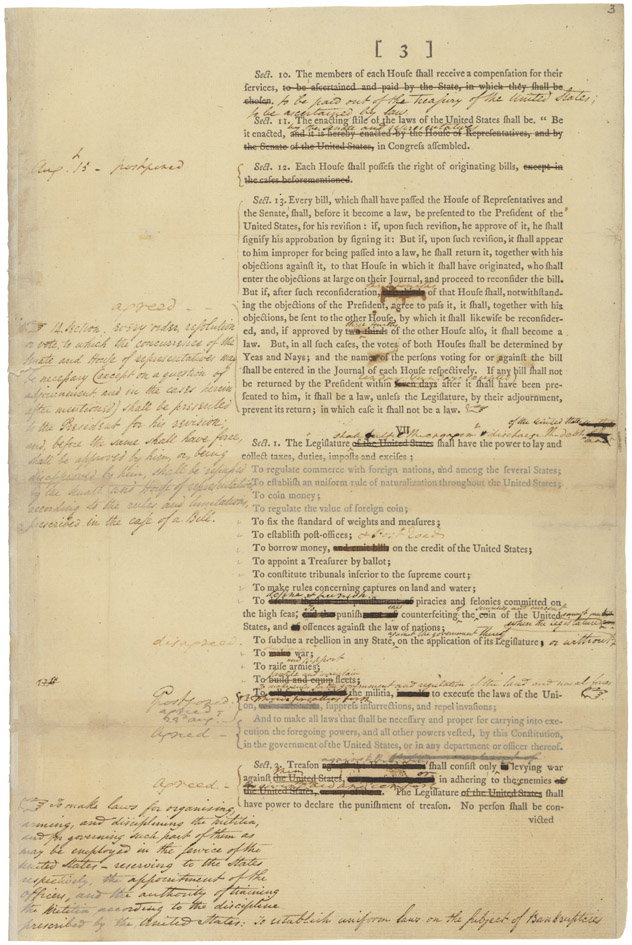 3
[ 3 ]
Sect. 10. The members of each House shall receive a compensation for their
services, to be ascertained and paid by the State, in which they shall be
chosen. to be paid out of the Treasury of the United States;
to be ascertained by law
Sect. 11. The enacting stile of the laws of the United States shall be. " Be
by the Senate and representatives
it enacted, and it is hereby enacted by the House of Representatives, and by
the Senate of the United States, in Congress assembled.
Augt. 15 - postponed
Sect. 12. Each House shall possess the right of originating bills, except in
the cases beforementioned.
Sect. 13. Every bill, which shall have passed the House of Representatives and
the Senate, shall, before it become a law, be presented to the President of the
United States, for his revision: if, upon such revision, he approve of it, he shall
signify his approbation by signing it: But if, upon such revision, it shall appear
to him improper for being passed into a law, he shall return it, together with his
objections against it, to that House in which it shall have originated, who shall
enter the objections at large on their Journal, and proceed to reconsider the bill.
But if, after such reconsideration, of that House shall, notwithstand-
ing the objections of the President, agree to pass it, it shall, together with his
objections, be sent to the other House, by which it shall likewise be reconsider-
ed, and, if approved by two thirds of the other House also, it shall become a
law. But, in all such cases, the votes of both Houses shall be determined by
Yeas and Nays; and the names of the persons voting for or against the bill
shall be entered in the Journal of each House respectively. If any bill shall not
be returned by the President within seven days after it shall have been pre-
sented to him, it shall be a law, unless the Legislature, by their adjournment,
prevent its return; in which case it shall not be a law.
agreed -
14. Section. every order, resolution
or vote, to which the concurrence of the
Senate and House of representatives may
be necessary (except on a question of
adjournment and in the cases herein
after mentioned) shall be presented
to the President for his revision;
and, before the same shall have force,
shall be approved by him, or, being
disapproved by him, shall be repassed
by the Senate and House of representatives
according to the rules and limitations
prescribed in the case of a Bill.
VII
of the United States
Sect. 1. The Legislature of the United States shall have the power to lay and
collect taxes, duties, imposts and excises;
To regulate commerce with foreign nations, and among the several States;
To establish an uniform rule of naturalization throughout the United States;
To coin money;
To regulate the value of foreign coin;
To fix the standard of weights and measures;
To establish post-offices; & Post Roads
To borrow money, and emit bills on the credit of the United States;
To appoint a Treasurer by ballot;
To constitute tribunals inferior to the supreme court;
To make rules concerning captures on land and water;
define & punish
To piracies and felonies committed on
the high seas; punish counterfeiting the coin of the United
States, and of offences against the law of nations;
disagreed.
To subdue a rebellion in any State, on the application of its Legislature, or without
To make war;
To raise armies;
and support
To build and equip fleets;
To the militia, to execute the laws of the Uni-
on, suppress insurrections, and repel invasions;
Postponed.
agreed
23 aug
Agreed -
And to make all laws that shall be necessary and proper for carrying into exe-
cution the foregoing powers, and all other powers vested, by this Constitution,
in the government of the United States, or in any department or officer thereof.
Agreed -
Sect. 2. Treason shall consist only levying war
against the United States, in adhering to the enemies of
the United States, The Legislature of the United States shall
have power to declare the punishment of treason. No person shall be con-
victed
To make laws for organising,
arming, and disciplining the Militia,
and for governing such part of them as
may be employed in the service of the
united States - reserving to the States
respectively, the appointment of the
Officers, and the authority of training
the Militia according to the discipline
prescribed by the United States: to establish uniform laws on the subject of Bankruptcies